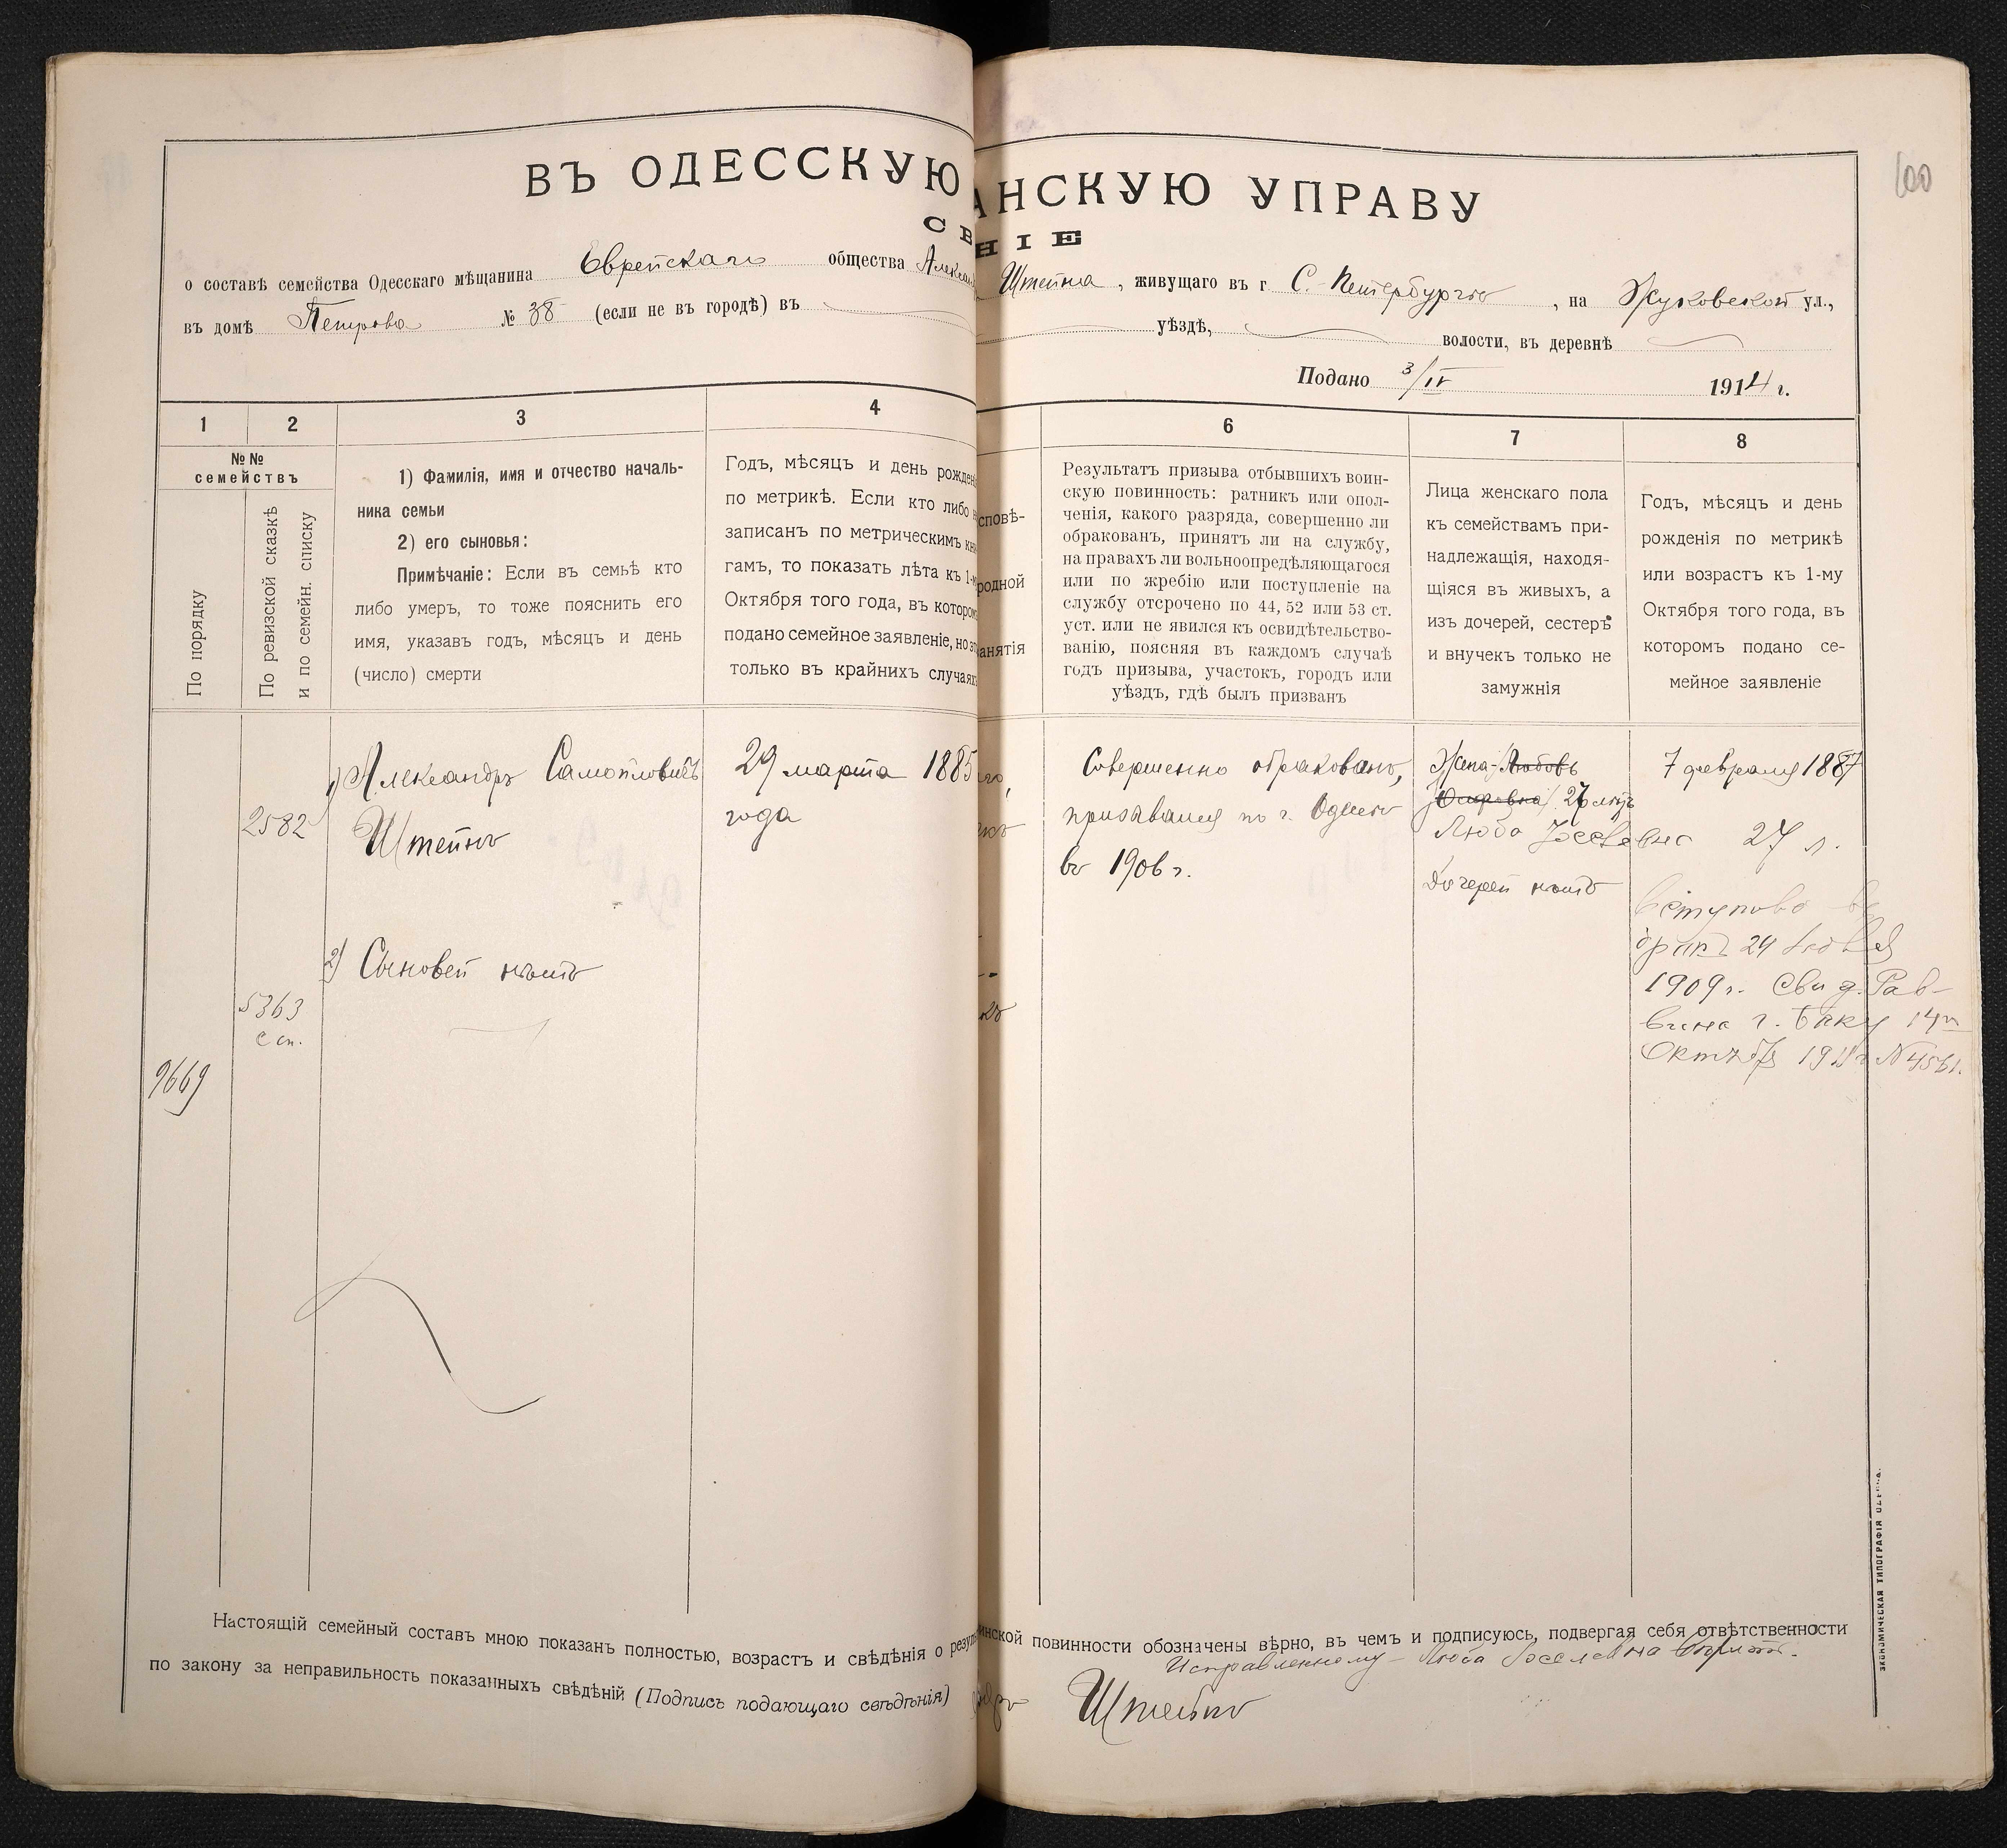 ВЪ ОДЕССКУЮ АНСКУЮ УПРАВУ
СВ НІЕ
о составѣ семейства Одесскаго мѣщанина Еврейскаго общества Алекса Штейна, живущаго въ г. С.-Петербургѣ, на Жуковской ул.,
въ домѣ Петрова № 38 (если не въ городѣ) въ уѣздѣ, волости, въ деревнѣ
Подано 3/IV 1914 г.
100
1 2 3 4 6 7 8
№№
семействъ
По порядку
По ревизской сказкѣ
и по семейн. списку
1) Фамилія, имя и отчество началь-
ника семьи
2) его сыновья:
Примѣчаніе: Если въ семьѣ кто
либо умеръ, то тоже пояснить его
имя, указавъ годъ, мѣсяцъ и день
(число) смерти
Годъ, мѣсяцъ и день рожден
по метрикѣ. Если кто либо
записанъ по метрическимъ кн
гамъ, то показать лѣта къ 1-м
Октября того года, въ котором
подано семейное заявленіе, но эт
только въ крайнихъ случаях
сповѣ-
родной
анятія
Результатъ призыва отбывшихъ воин-
скую повинность: ратникъ или опол-
ченія, какого разряда, совершенно ли
обракованъ, принятъ ли на службу,
на правахъ ли вольноопредѣляющагося
или по жребію или поступленіе на
службу отсрочено по 44, 52 или 53 ст.
уст. или не явился къ освидѣтельство-
ванію, поясняя въ каждомъ случаѣ
годъ призыва, участокъ, городъ или
уѣздъ, гдѣ былъ призванъ
Лица женскаго пола
къ семействамъ при-
надлежащія, находя-
щіяся въ живыхъ, а
изъ дочерей, сестеръ
и внучекъ только не
замужнія
Годъ, мѣсяцъ и день
рожденія по метрикѣ
или возрастъ къ 1-му
Октября того года, въ
которомъ подано се-
мейное заявленіе
1) Александръ Самойловичъ
Штейнъ
2582
29 марта 1885
года
Совершенно обракованъ,
призывался по г. Одессѣ
въ 1906 г.
Жена - Любовь
27 лѣтъ
Люба Іоселевна 27 л.
Дочерей нѣтъ
7 февраля 1887
2) Сыновей нѣтъ
5363
с сп.
9669
Вступ въ
бракъ 24
1909 г. Свид. Рав-
вина г. Баку 14го
Октября 19 г. №4561.
Настоящій семейный составъ мною показанъ полностью, возрастъ и свѣдѣнія о резул инской повинности обозначены вѣрно, въ чемъ и подписуюсь, подвергая себя отвѣтственности
по закону за неправильность показанныхъ свѣдѣній (Подпись подающаго свѣдѣнія)
Исправленному - Люба Іоселевна вѣрить.
Штейнъ
ЭКОНОМИЧЕСКАЯ ТИПОГРАФІЯ ОДЕССА.